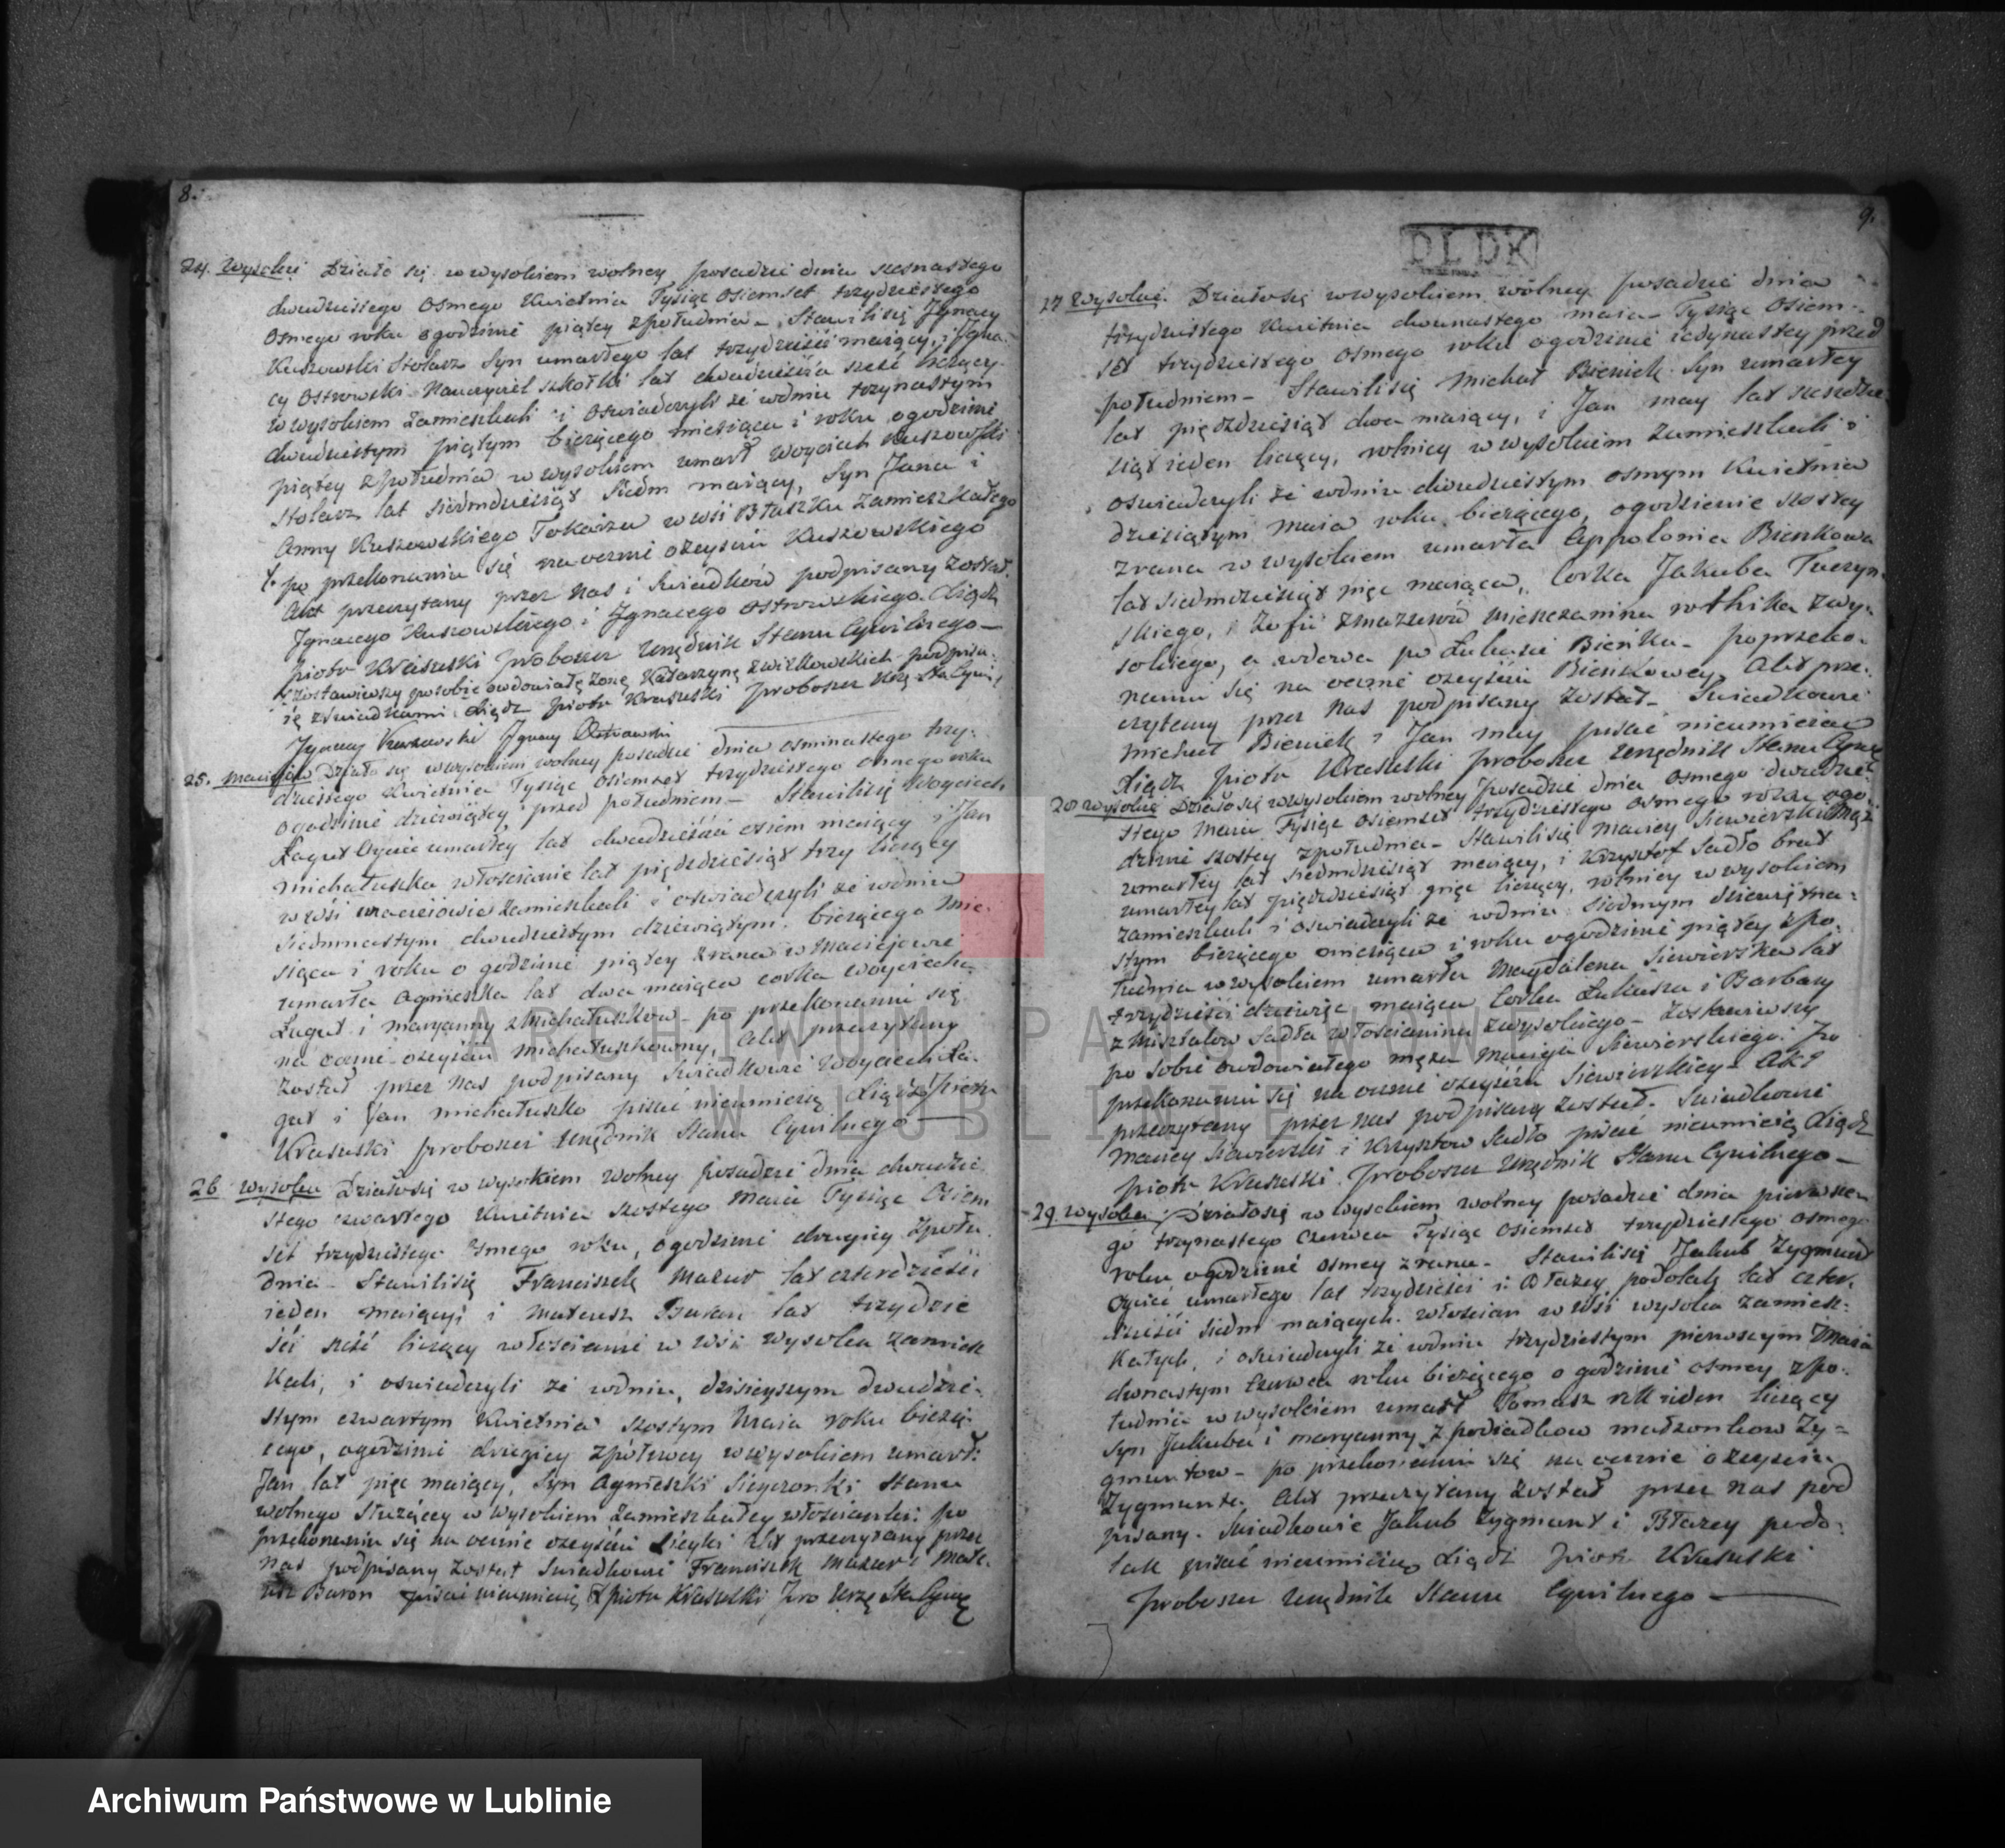 8.
24. Wysokie Działo się w wysokiem wolney posadzie dnia szesnastego
dwudziestego Osmego Kwietnia Tysiąc Osiemset trzydziestego
Osmego roku o godzinie piątey zpołudnia – Stawili się Jgnacy
Kuszowski Stolarz Syn umarłego lat trzydzieści maiący, i Jgna-
cy Ostrowski Nauczyciel szkołki lat dwadzieścia sześć liczący
w wysokiem Zamieszkali i oswiadczyli że wdniu trzynastym
dwudziestym piątym bieżącego miesiąca i roku o godzinie
piątey zpołudnia w wysokiem umarł Woyciech Kuszowski
Stolarz lat siedmdziesiąt siedm maiący, Syn Jana i
Anny Kuszowskiego Tokarza w wsi Błaszku Zamieszkałego
po przekonaniu się na ocznie o zeyściu Kuszowskiego
Akt przeczytany przez Nas i Swiadków podpisany Został.
Jgnacego Kuszowskiego i Jgnacego Ostrowskiego. Xiądz
Piotr Krasuski proboszcz Urzędnik Stanu Cywilnego —
Zostawiwszy po sobie owdowiałę Zonę Katarzynę Zwilkowskich podpisu-
ię z swiadkami. Xiądz Piotr Krasuski Proboszcz Urzę Sta Cywi,
Jgnacy Kuszowski Jgnacy Ostrowski
25. Maciejów Działo się w wysokiem wolney posadzie dnia osminastego trzy-
dziestego Kwietnia Tysiąc Osiemset trzydziestego osmego roku
o godzinie dziewiątey przed południem – Stawili się Woyciech
Łagut Oyciec umarłey lat dwadzieścia osiem maiący i Jan
Michałuszko włoscianie lat pięćdziesiąt trzy liczący
w wsi Maciejowie Zamieszkali i oswiadczyli że wdniu
siedmnastym dwudziestym dziewiątym bieżącego mie-
siąca i roku o godzinie piątey z rana w Maciejowie
umarła Agnieszka lat dwa maiąca corka Woyciecha
Łagut i Maryanny z Michałuszkow – po przekonaniu się
na ocznie o zeyściu Michałuszkowny, Akt przeczytany
Został przez Nas podpisany Swiadkowie Woyciech Ła-
gut i Jan Michałuszko pisać nieumieią Xiądz Piotr
Krasuski proboszcz Urzędnik Stanu Cywilnego —
26 Wysokie Działo się w wysokiem Wolney posadzie dnia dwudzie-
stego czwartego Kwietnia szostego Maia Tysiąc Osiem
set trzydziestego osmego roku, o godzinie drugiey zpołu-
dnia – Stawili się Franciszek Mazur lat czterdzieści
ieden maiący i Mateusz Baran lat trzydzie
ści sześć liczący włoscianie w wsi wysokie zamiesz
Kali, i oswiadczyli że wdniu, dzisieyszym dwudzie-
stym czwartym Kwietnia szostym Maia roku bieżą-
cego, o godzinie drugiey w wysokiem umarł:
Jan lat pięć maiący, Syn Agnieszki Stanu
wolnego Służącey w Wysokiem Zamieszkałey włoscianki: po
przekonaniu się na ocznie o zeyściu Akt przeczytany przez
nas podpisany Został Swiadkowie Franciszek Mazur i Mate-
usz Baron pisać nieumieią X Piotr Krasuski Pro Urzę Sta Cywi
9.
DLDK
27 Wysokie. Działo się w wysokiem wolney posadzie dnia
trzydziestego Kwietnia dwunastego maia – Tysiąc Osiem-
set trzydziestego osmego roku o godzinie iedynastey przed
południem – Stawili się Michał Bieniek Syn umarłey
lat pięćdziesiąt dwa maiący, i Jan may lat szeszdzie-
siąt ieden liczący, rolnicy w wysokiem Zamieszkali i
oswiadczyli że wdniu dwudziestym osmym Kwietnia
dziesiątym Maia roku bieżącego, o godzienie szostey
z rana w wysokiem umarła Appolonia Bienkowa
lat siedmdziesiąt pięć maiąca, Corka Jakuba Tuczyn-
skiego, i Zofii Zmazurow mieszczanina rolnika zwy-
sokiego, a wdowa po Łukasie Bieńku – po przeko-
naniu się na ocznie o zeyściu Bieńkowey, Akt prze-
czytany przez Nas podpisany Został – Swiadkowie
Michał Bieniek i Jan may pisać nieumieią
Xiądz Piotr Krasuski proboszcz Urzędnik Stanu Cywi
28 Wysokie Działo się w wysokiem wolney Posadzie dnia osmego dwudzie-
stego Maia Tysiąc Osiemset trzydziestego osmego roku o go-
dzinie szostey zpołudnia – Stawili się Maciey Siewierski Mąż
umarłey lat siedmdziesiąt maiący, i Krzysztof Sadło brat
umarłey lat pięćdziesiąt pięć liczący, rolnicy w wysokiem
Zamieszkali i oswiadczyli że wdniu siodmym dziewiętna-
stym bieżącego miesiąca i roku o godzinie piątey zpo-
łudnia w wysokiem umarła Magdalena Siewierska lat
trzydzieści dziewięć maiąca Corka Łukasza i Barbary
z Misztalow Sadła włoscianina zwysokiego – Zostawiwszy
po sobie owdowiałego męża Macieja Siewierskiego. Po
przekonaniu się na ocznie o zeyściu Siewierskiey – Akt
przeczytany przez nas podpisany został. Swiadkowie
Maciey Siewierski i Krzysztow Sadło pisać nieumieią Xiądz
Piotr Krasuski. Proboszcz Urzędnik Stanu Cywilnego —
29. Wysokie: Działo się w wysokiem wolney posadzie dnia pierwsze-
go trzynastego Czerwca Tysiąc Osiemset trzydziestego osmego
roku o godzinie osmey z rana – Stawili się Jakub Zygmunt
Oyciec umarłego lat trzydzieści i Błazey podolak lat czter-
dzieści siedm maiących. włoscian w wsi wysokie zamiesz-
kałych, i oswiadczyli że wdniu trzydziestym pierwszym Maia
dwunastym Czerwca roku bieżącego o godzinie osmey zpo-
łudnia w wysokiem umarł Tomasz rok ieden liczący
Syn Jakuba i Maryanny z podiadkow małzonkow Zy-
gmuntow – po przekonaniu się na ocznie o zeyściu
Zygmunta. Akt przeczytany Został przez nas pod
pisany. Swiadkowie Jakub Zygmunt i Błazey podo-
lak pisać nieumieią Xiądz Piotr Krasuski
Proboszcz Urzędnik Stanu Cywilnego —
ARCHIWUM PAŃSTWOWE
W LUBLINIE
Archiwum Państwowe w Lublinie